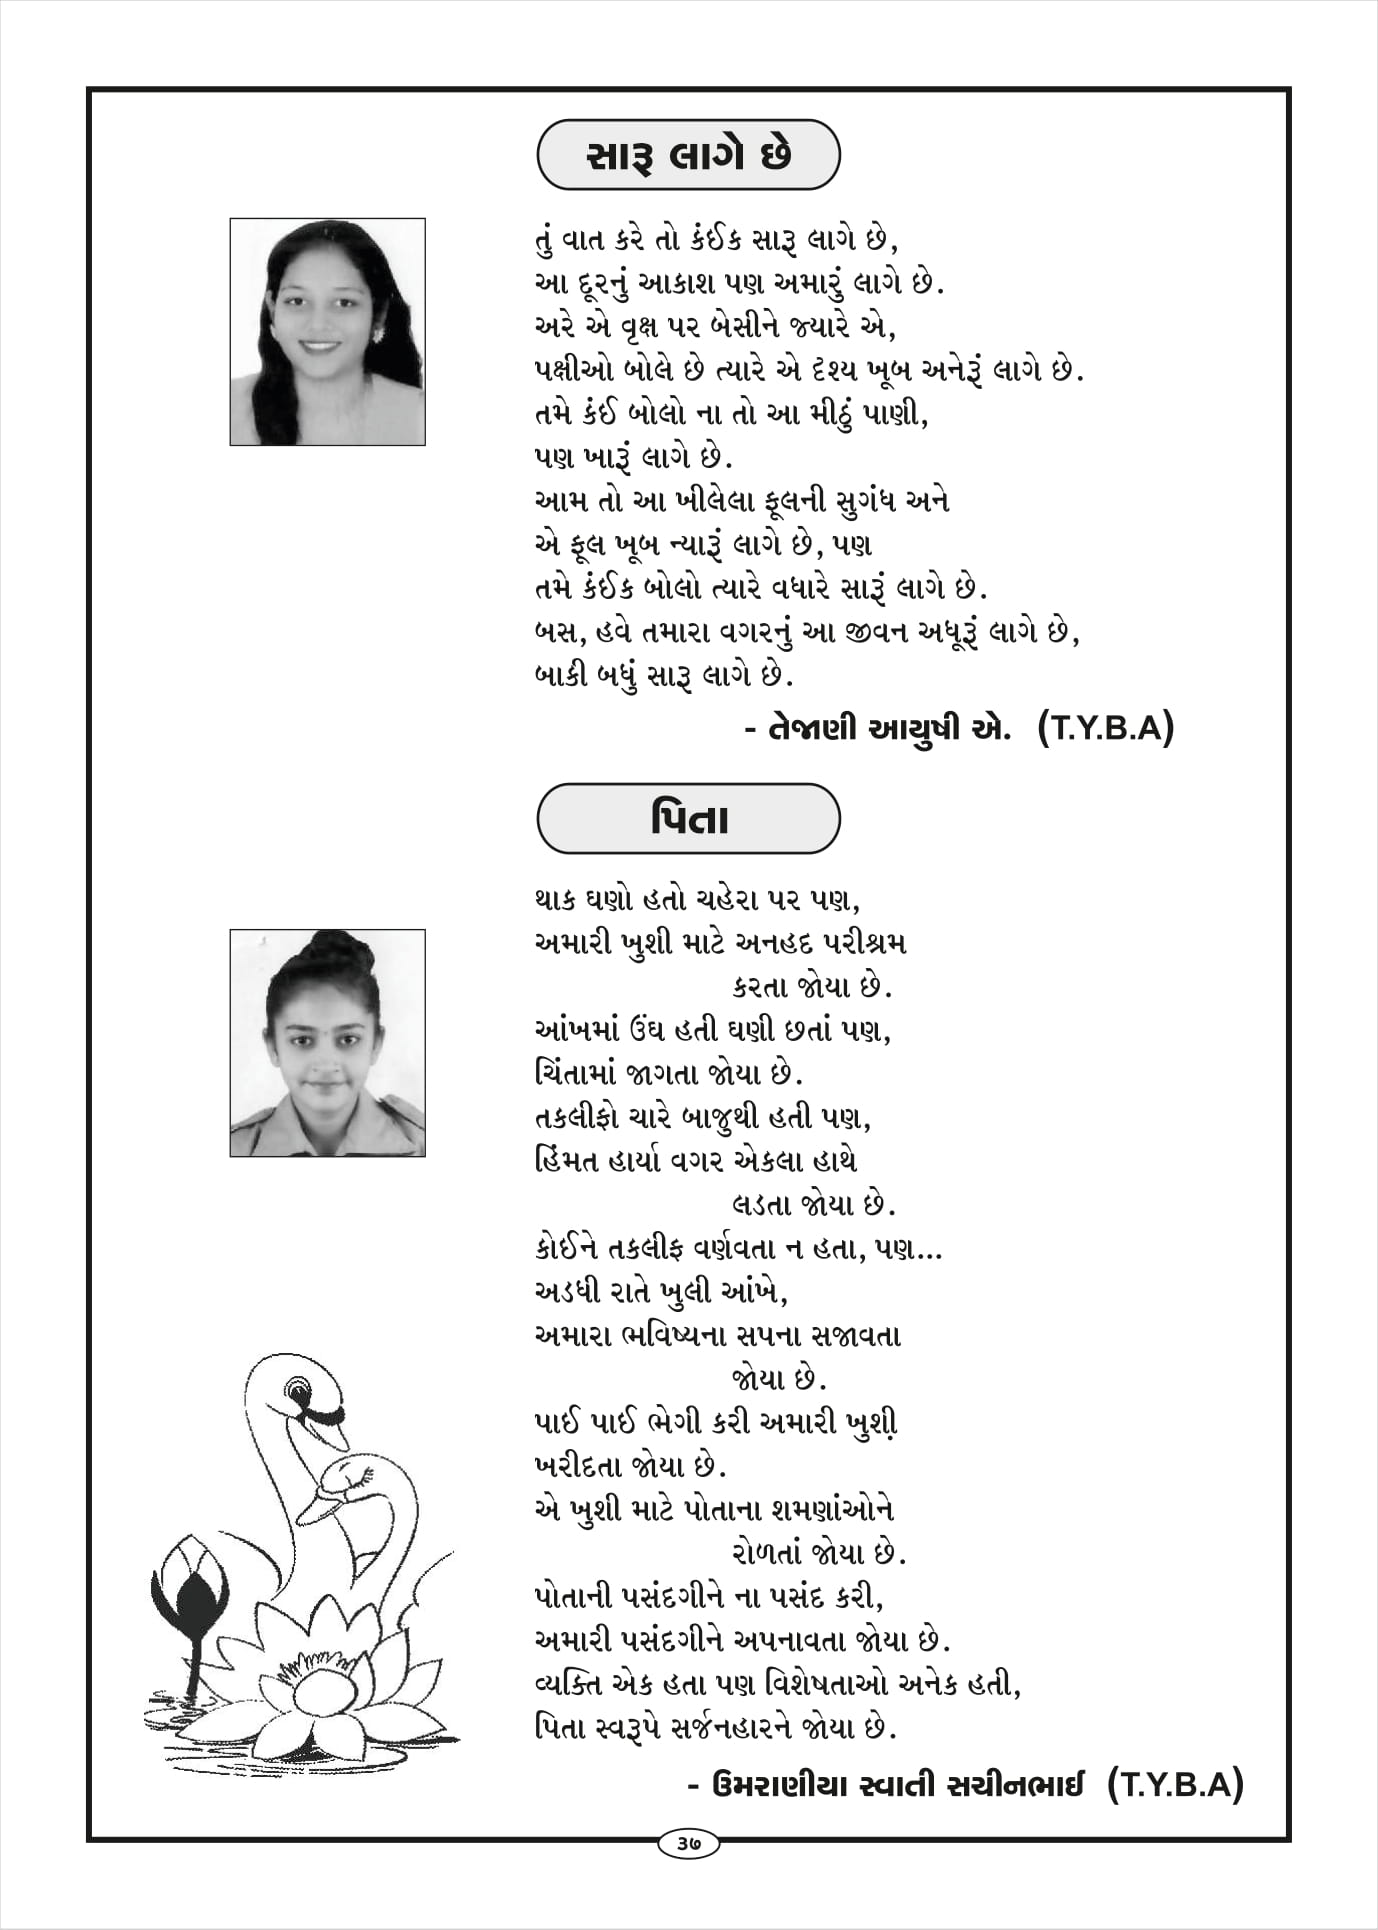 સારૂ લાગે છે
તું વાત કરે તો કંઈક સારૂ લાગે છે,
આ દૂરનું આકાશ પણ અમારું લાગે છે.
અરે એ વૃક્ષ પર બેસીને જ્યારે એ,
પક્ષીઓ બોલે છે ત્યારે એ દૃશ્ય ખૂબ અનેરૂં લાગે છે.
તમે કંઈ બોલો ના તો આ મીઠું પાણી,
પણ ખારૂં લાગે છે.
આમ તો આ ખીલેલા ફૂલની સુગંધ અને
એ ફૂલ ખૂબ ન્યારૂં લાગે છે, પણ
તમે કંઈક બોલો ત્યારે વધારે સારૂં લાગે છે.
બસ, હવે તમારા વગરનું આ જીવન અધૂરૂં લાગે છે,
બાકી બધું સારૂ લાગે છે.
- તેજાણી આયુષી એ. (T.Y.B.A)
પિતા
થાક ઘણો હતો ચહેરા પર પણ,
અમારી ખુશી માટે અનહદ પરીશ્રમ
કરતા જોયા છે.
આંખમાં ઉંઘ હતી ઘણી છતાં પણ,
ચિંતામાં જાગતા જોયા છે.
તકલીફો ચારે બાજુથી હતી પણ,
હિંમત હાર્યા વગર એકલા હાથે
લડતા જોયા છે.
કોઈને તકલીફ વર્ણવતા ન હતા, પણ...
અડધી રાતે ખુલી આંખે,
અમારા ભવિષ્યના સપના સજાવતા
જોયા છે.
પાઈ પાઈ ભેગી કરી અમારી ખુશી઼
ખરીદતા જોયા છે.
એ ખુશી માટે પોતાના શમણાંઓને
રોળતાં જોયા છે.
પોતાની પસંદગીને ના પસંદ કરી,
અમારી પસંદગીને અપનાવતા જોયા છે.
વ્યક્તિ એક હતા પણ વિશેષતાઓ અનેક હતી,
પિતા સ્વરૂપે સર્જનહારને જોયા છે.
- ઉમરાણીયા સ્વાતી સચીનભાઈ (T.Y.B.A)
૩૭